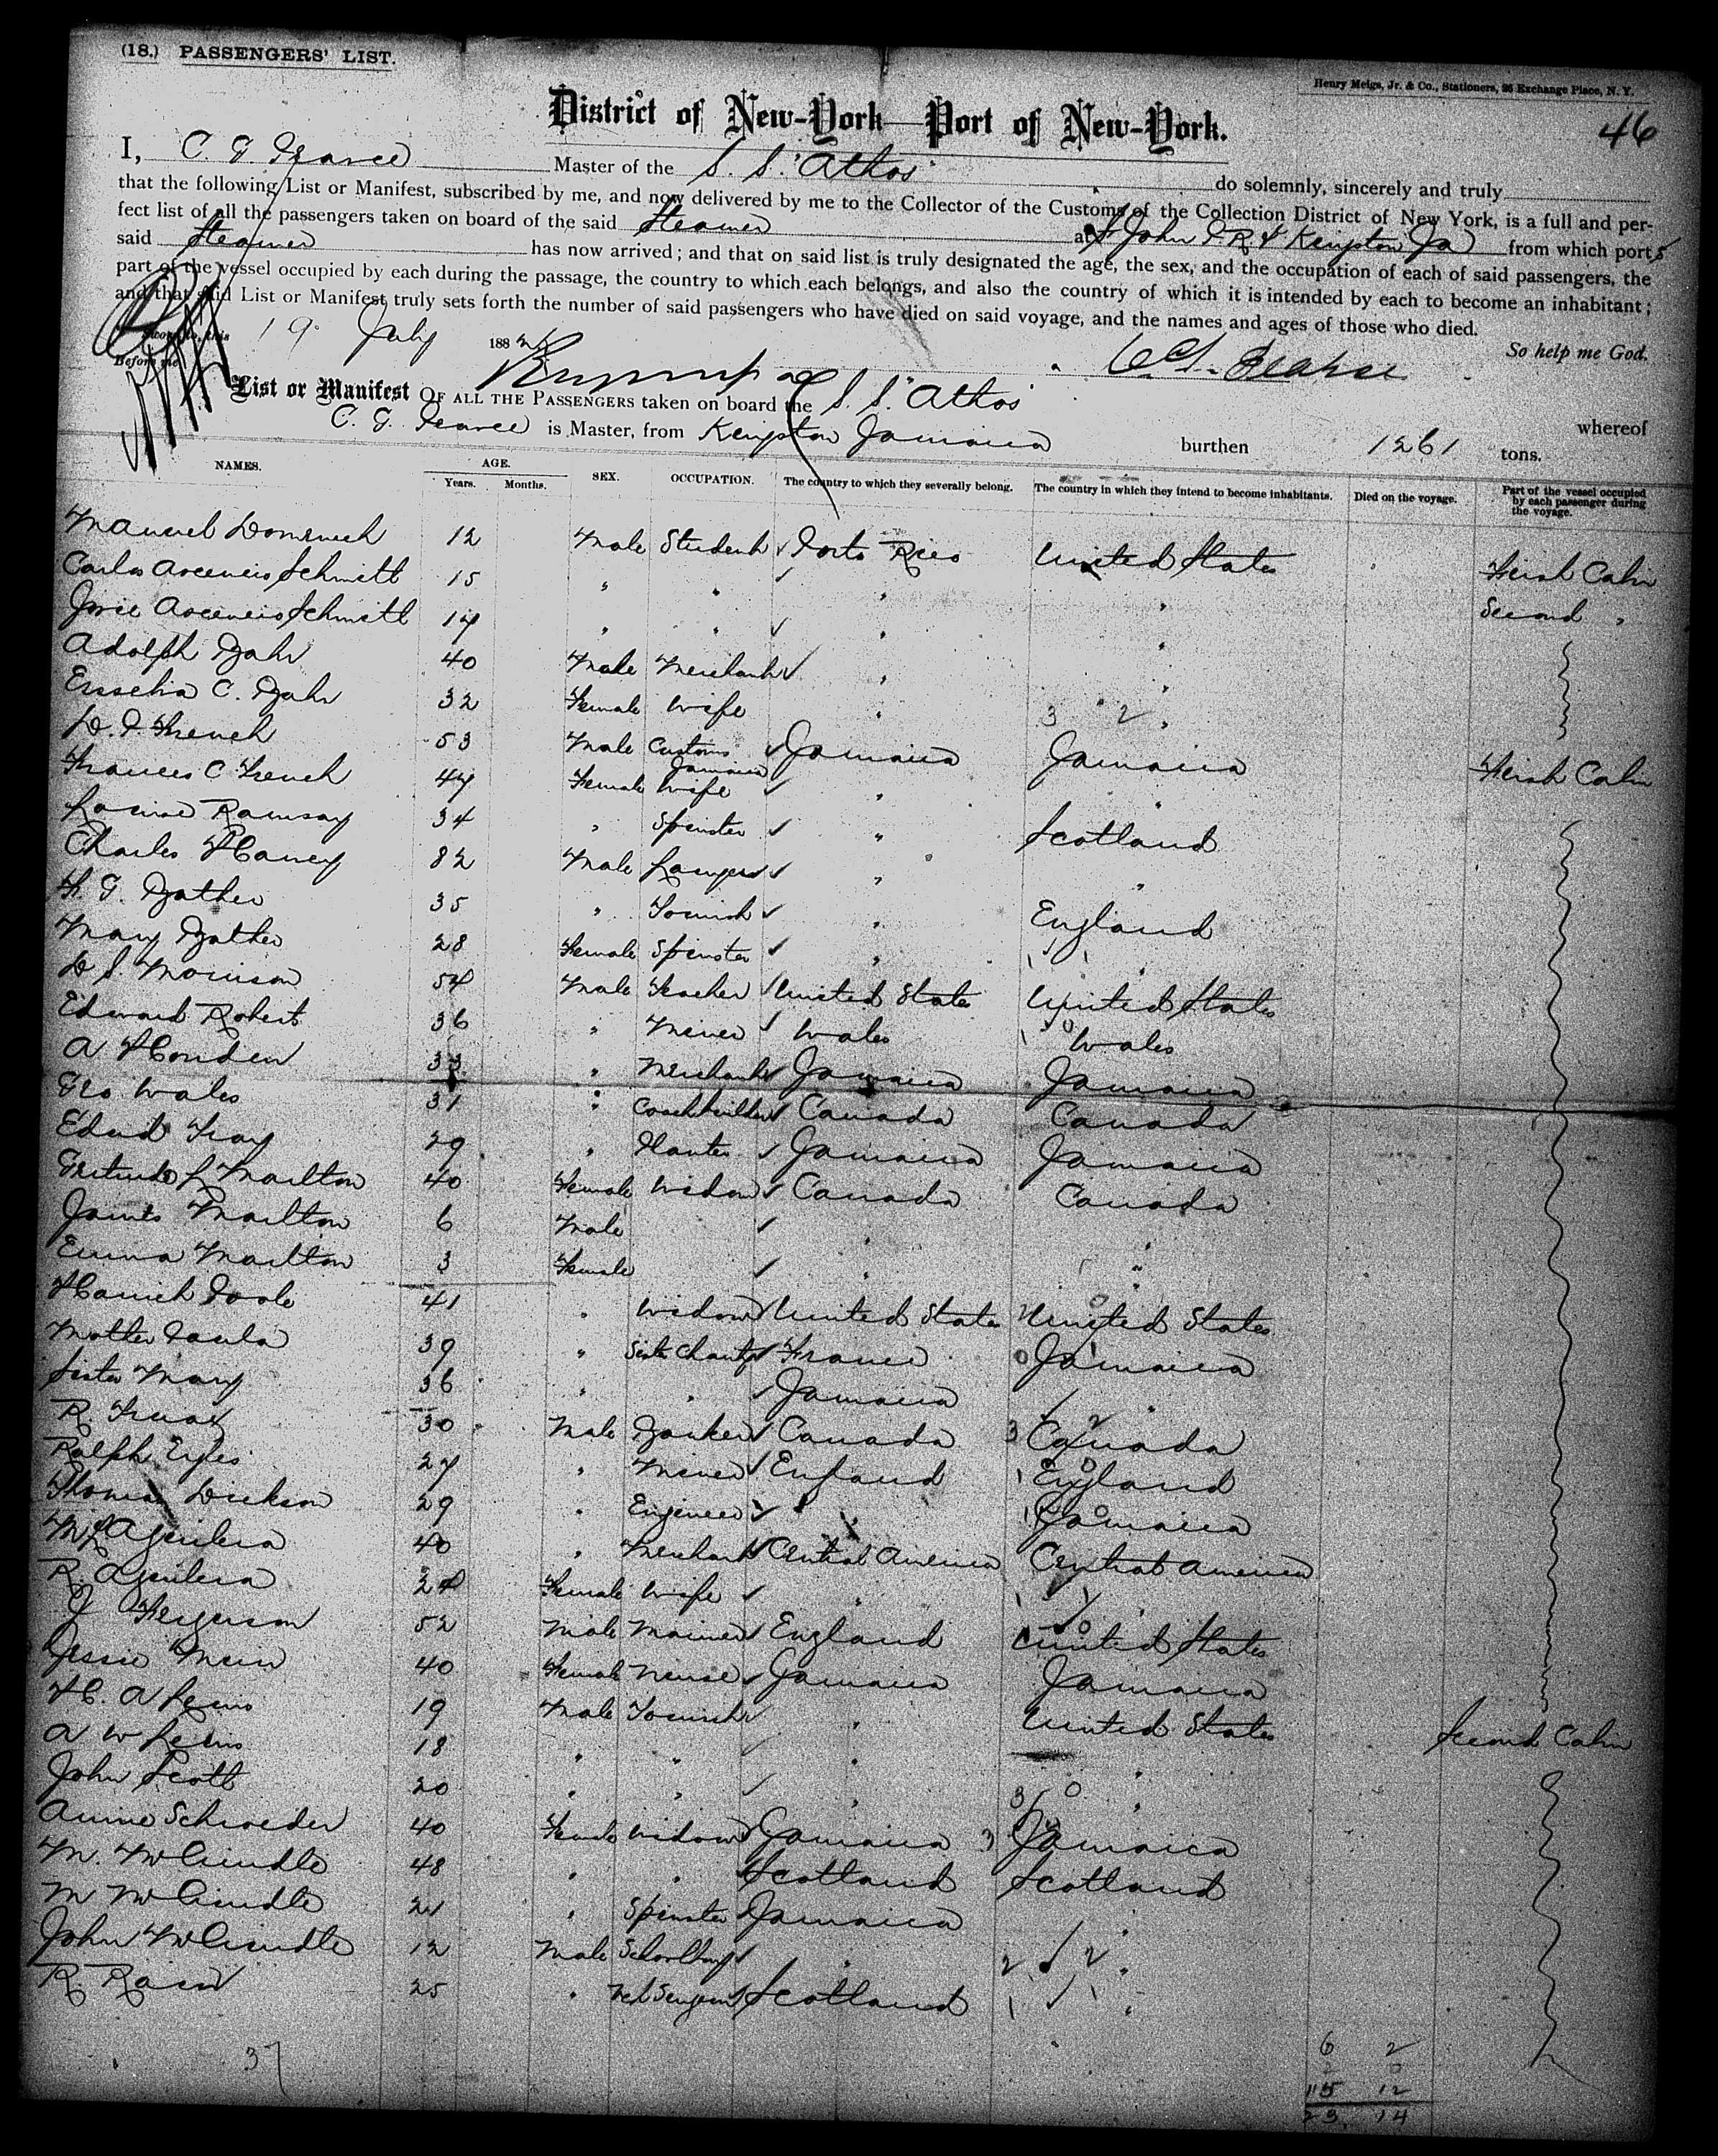 (18.) PASSENGERS' LIST.
Henry Meigs, Jr. & Co., Stationers, 26 Exchange Place, N. Y.
District of New-York—Port of New-York.
46
I, C G Pearce Master of the S. S. "Athos" do solemnly, sincerely and truly
that the following List or Manifest, subscribed by me, and now delivered by me to the Collector of the Customs of the Collection District of New York, is a full and per-
fect list of all the passengers taken on board of the said Steamer at St John P. R. & Kingston Ja from which ports
said Steamer has now arrived; and that on said list is truly designated the age, the sex, and the occupation of each of said passengers, the
part of the vessel occupied by each during the passage, the country to which each belongs, and also the country of which it is intended by each to become an inhabitant;
and that said List or Manifest truly sets forth the number of said passengers who have died on said voyage, and the names and ages of those who died.
Sworn to, this 19 July 188 So help me God.
Before me
List or Manifest OF ALL THE PASSENGERS taken on board the S. S. "Athos" whereof
C. G. Pearce is Master, from Kingston Jamaica burthen 1261 tons.
NAMES. AGE. Years. Months. SEX. OCCUPATION. The country to which they severally belong. The country in which they intend to become inhabitants. Died on the voyage. Part of the vessel occupied by each passenger during the voyage.
Manuel 12 Male Student Porto Rico United States First Cabin
Carlos Schmitt 15 " " " " Second "
Jose Schmitt 14 " " " "
Adolph Bahr 40 Male Merchant " "
C. Bahr 32 Female Wife " "
D. P. French 53 Male Customs Jamaica Jamaica Jamaica First Cabin
Frances C French 47 Female Wife " "
Louise Ramsay 34 " Spinster " Scotland
Charles Harvey 82 Male Lawyer " "
F. G. Bather 35 " Tourist " England
Mary Bather 28 Female Spinster " "
D S Morrison 54 Male Teacher United States United States
Edward Robert 36 " Miner Wales Wales
A 33 " Merchant Jamaica Jamaica
Geo Wales 31 " Coachbuilder Canada Canada
29 " Planter Jamaica Jamaica
Gertrude L Marlton 40 Female Widow Canada Canada
James Marlton 6 Male " "
Emma Marlton 3 Female " "
Harriet Poole 41 " Widow United States United States
Mother Paula 39 " Sister Charity France Jamaica
Sister Mary 36 " " Jamaica "
R. Truax 30 Male Banker Canada Canada
Ralph 27 " Miner England England
Thomas Dickson 29 " Engineer " Jamaica
Aguilera 40 " Merchant Central America Central America
R. Aguilera 24 Female Wife " "
J Ferguson 52 Male Mariner England United States
Jessie 40 Female Nurse Jamaica Jamaica
H. A Lewis 19 Male Tourist " United States Second Cabin
A W Lewis 18 " " " "
John Scott 20 " " " "
Annie Schroeder 40 Female Widow Jamaica Jamaica
M. McCrindle 48 " " Scotland Scotland
M McCrindle 21 " Spinster Jamaica "
John McCrindle 12 Male Schoolboy " "
R. Rain 25 " Scotland "
37
6 2
115 12
23 14